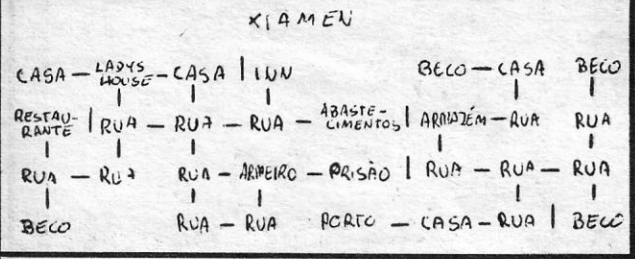 XIAMEN
CASA — LADYS HOUSE — CASA | INN BECO — CASA BECO
RESTAU-RANTE | RUA — RUA — RUA — ABASTE-CIMENTOS | ARMAZÉM — RUA RUA
RUA — RUA RUA — ARMEIRO — PRISÃO | RUA — RUA — RUA
BECO RUA — RUA PORTO — CASA — RUA | BECO